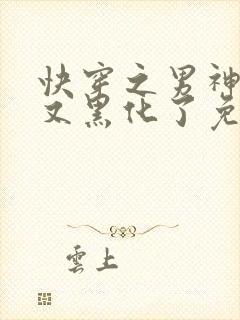 快穿之男神
又黑化了免
雲上